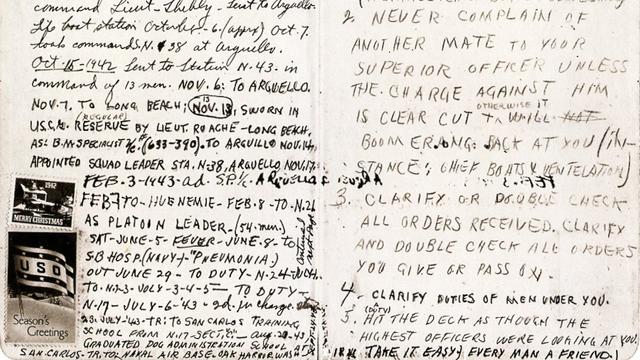 command Lieut. Shelby - Sent to Arguello
Life boat station October - 6 (appx) Oct. 7.
took command N. 38 at Arguello.
Oct. 15 - 1942 Sent to Station N-43 - in
command of 13 men. NOV. 6: TO ARGUELLO.
NOV. 7, TO LONG BEACH; NOV. 13, SWORN IN
13
U.S.C.G. RESERVE BY LIEUT. ROACHE - LONG BEACH.
(REGULAR)
AS: B.M. SPECIALIST (633-390). TO ARGUILLO NOV. 14,
APPOINTED SQUAD LEADER STA. N-38, ARGUELLO NOV. 17.
FEB. 3 - 1943 - ad. SP. 1/c.
FEB 7 TO - HUENEMIE - FEB. 8 - TO N. 21
AS PLATOON LEADER - (54. men)
SAT - JUNE - 5 - FEVER - JUNE. 8 - TO
S.B HOSP. (NAVY) + "PNEUMONIA.)
OUT JUNE 29 - TO DUTY - N-24 - JULY.
TO - N-23 - JULY - 3 - 4 - 5 = TO DUTY -
N-17 - JULY - 6 - 43 - 2d. in charge.
23 - JULY - 43 - TR: TO SAN CARLOS TRAINING
SCHOOL FROM N-17. SECT.
GRADUATED DOG ADMINISTRATION SCHOOL
SAN. CARLOS - TR. TO NAVAL AIR BASE. OAK HARBOR
1942
MERRY CHRISTMAS
USO
Season's
Greetings
2. NEVER COMPLAIN OF
ANOTHER MATE TO YOUR
SUPERIOR OFFICER UNLESS
THE CHARGE AGAINST HIM
OTHERWISE IT
IS CLEAR CUT WILL NOT
BOOMERANG BACK AT YOU (IN-
STANCE; CHIEF BOATS &
3. CLARIFY OR DOUBLE CHECK
ALL ORDERS RECEIVED. CLARIFY
AND DOUBLE CHECK ALL ORDERS
YOU GIVE OR PASS ON.
4. CLARIFY DUTIES OF MEN UNDER YOU.
(DUTY)
5. HIT THE DECK AS THOUGH THE
HIGHEST OFFICERS WERE LOOKING AT YOU
TAKE IT EASY; EVERY MAN A FRIEND.